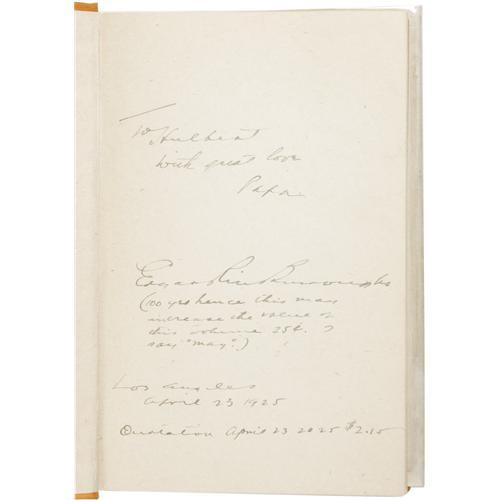 To Hulbert
with great love
Papa
Edgar Rice Burroughs
(100 yrs hence this may
increase the value of
this volume 25¢. I
say "may".)
Los Angeles
April 23 1925
Quotation April 23 2025 $2.15